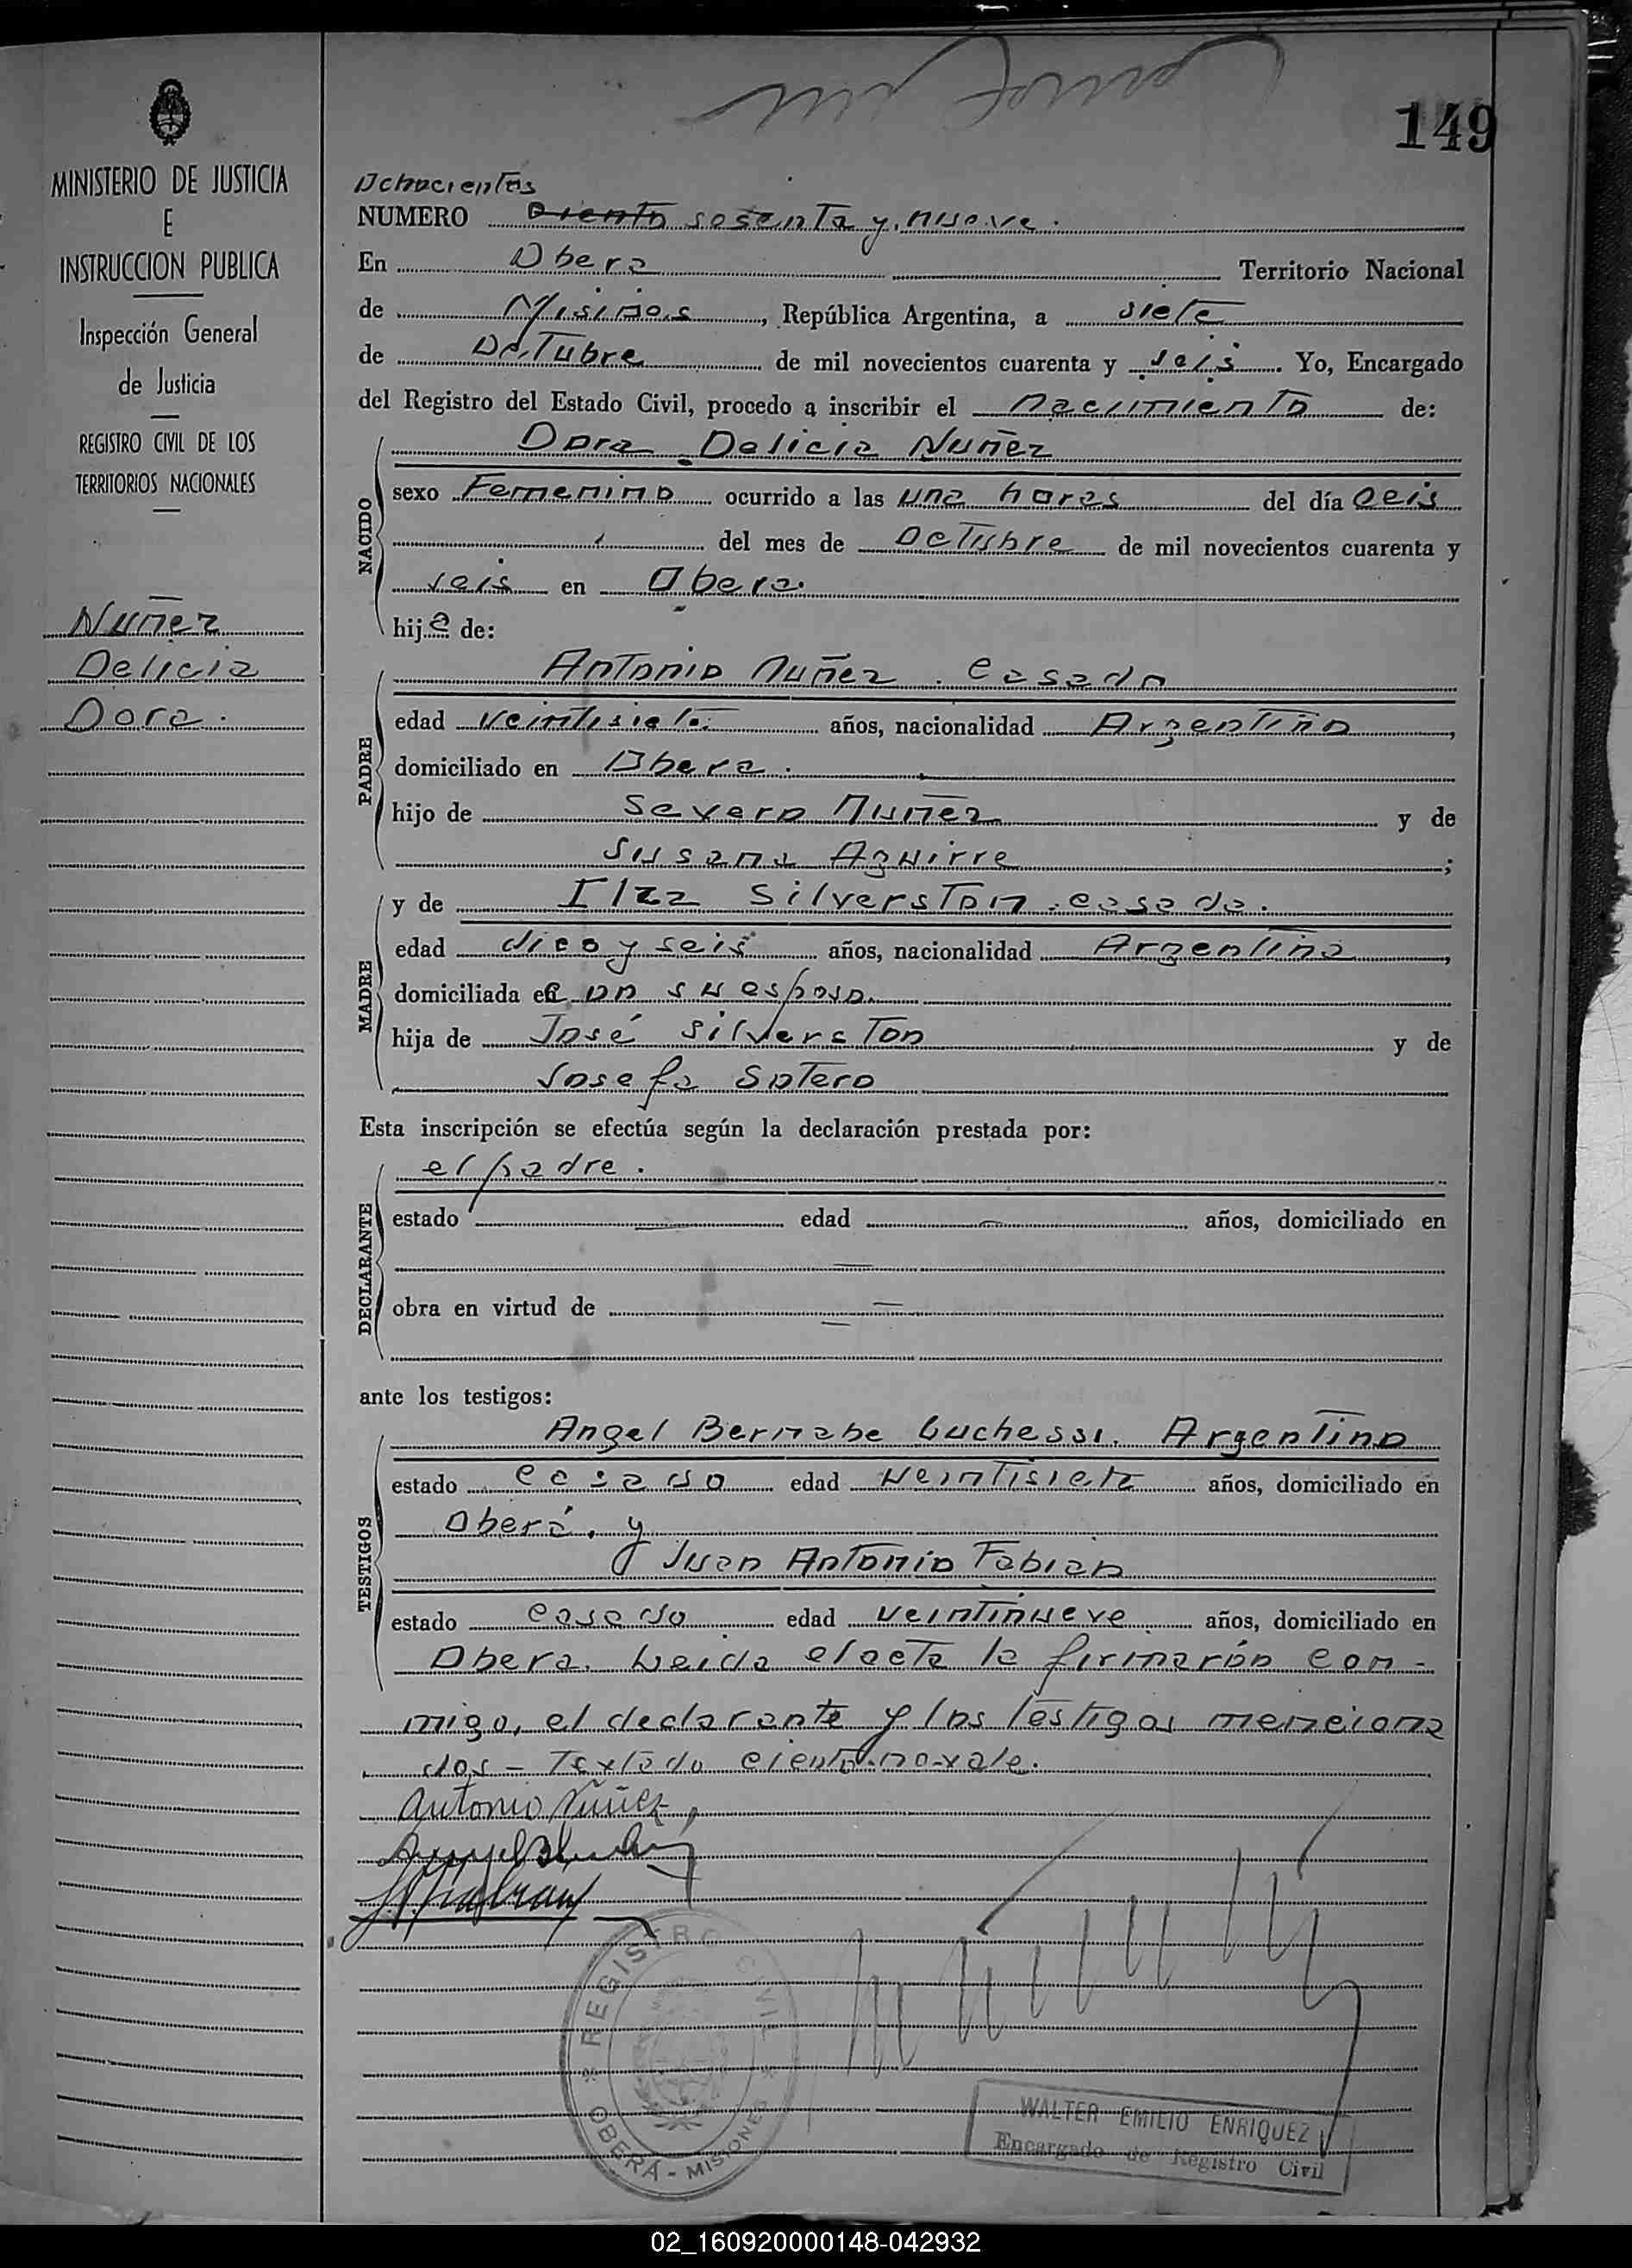 149
MINISTERIO DE JUSTICIA
E
INSTRUCCION PUBLICA
Inspección General
de Justicia
REGISTRO CIVIL DE LOS
TERRITORIOS NACIONALES
Nuñez
Delicia
Dora.
Ochocientos
NUMERO Ciento sesenta y nueve.
En Obera Territorio Nacional
de Misiones, República Argentina, a siete
de Octubre de mil novecientos cuarenta y seis. Yo, Encargado
del Registro del Estado Civil, procedo a inscribir el nacimiento de:
NACIDO
Dora Delicia Nuñez
sexo Femenino ocurrido a las una horas del día seis
del mes de Octubre de mil novecientos cuarenta y
seis en Obera.
hija de:
PADRE
Antonio Nuñez. casado
edad veintisiete. años, nacionalidad Argentino,
domiciliado en Obera.
hijo de Severo Nuñez y de
Susana Aguirre;
MADRE
y de Ilza Silverston. casada.
edad diez y seis años, nacionalidad Argentina,
domiciliada en con su esposo.
hija de José Silverston y de
Josefa Sotero
Esta inscripción se efectúa según la declaración prestada por:
DECLARANTE
el padre.
estado — edad — años, domiciliado en
—
obra en virtud de —
ante los testigos:
TESTIGOS
Angel Bernabe Luchessi. Argentino
estado casado edad veintisiete años, domiciliado en
Oberá. y
Juan Antonio Fabian
estado casado edad veintinueve años, domiciliado en
Obera. Leida el acta la firmarón con-
migo, el declarante y los testigos menciona
dos - Textado ciento-no-vale.
Antonio Nuñez
REGISTRO CIVIL
OBERÁ - MISIONES
WALTER EMILIO ENRIQUEZ
Encargado de Registro Civil
02_160920000148-042932